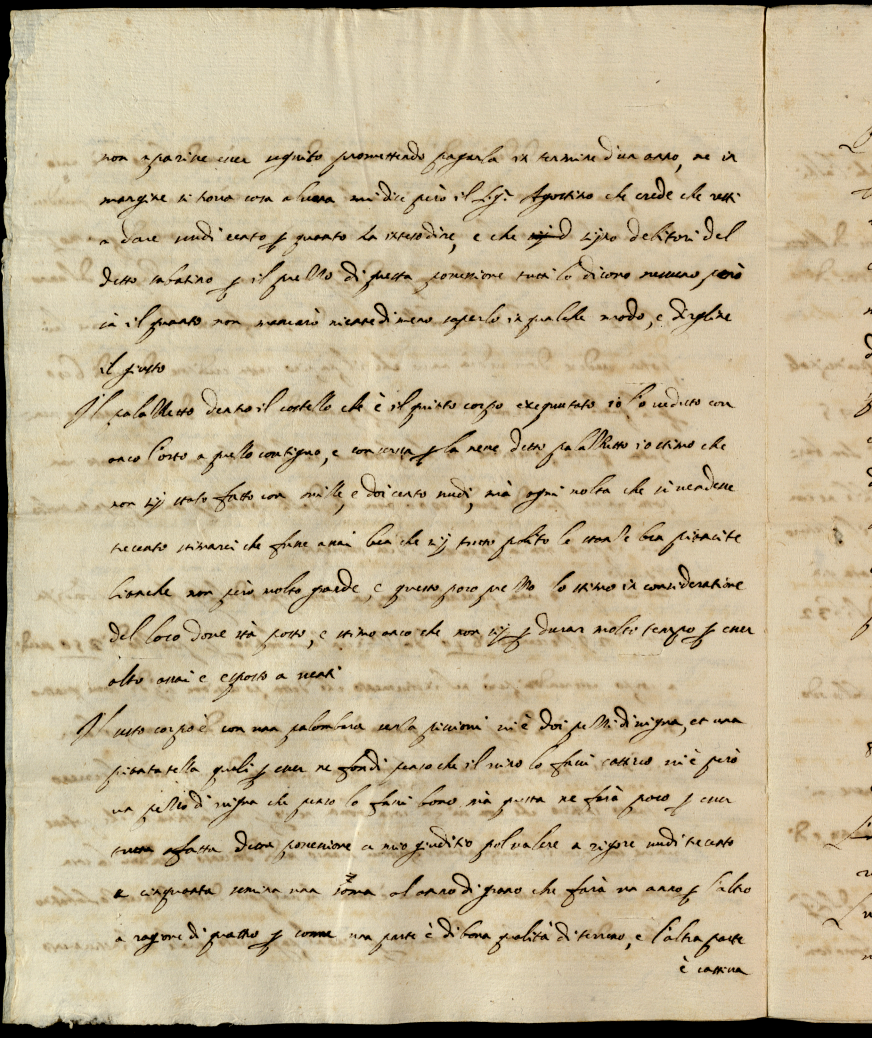 non apparive esser seguito promettendo pagarla in termine d'un anno, ne in
margine si trova cosa alcuna mi dice però il Sig.r Agostino che crede che resti
a dare scudi cento p quanto ha inteso dire, e che sijno debitori del
detto sabatino p il prezzo di questa possessione tutti lo dicono nessuno però
sà il quanto non mancarò nientedimeno saperlo in qualche modo, e dirgline
il giusto
Il palazzetto dentro il castello che è il quinto corpo exequutato io l'o veduto con
anco l'orto a quello contiguo, e p la detto palazzetto io stimo che
non sij stato fatto con mille, e doicento scudi, mà ogni volta che si vendesse
trecento stimarei che fusse assai ben che sij tutto polito le stanze ben
bianche non però molto grande, e questo poco prezzo lo stimo in consideratione
del loco dove stà posto, e stimo anco che non sij p durar molto tempo p esser
alto assai e esposto a venti
Il sesto corpo è con una palombara senza piccioni vi è doi pezzi di vigna, et una
quali p esser ne fondi penso che il vino lo facci cattivo vi è però
un pezzo di vigna che penso lo facci bono mà questa ne farà poco p esser
detta possessione a mio giuditio pol valere a rigore scudi trecento
e cinquanta semina una soma al anno di grano che farà un anno p l'altro
a ragione di quattro p una parte è di bona qualità di terreno, e l'altra parte
è cattiva